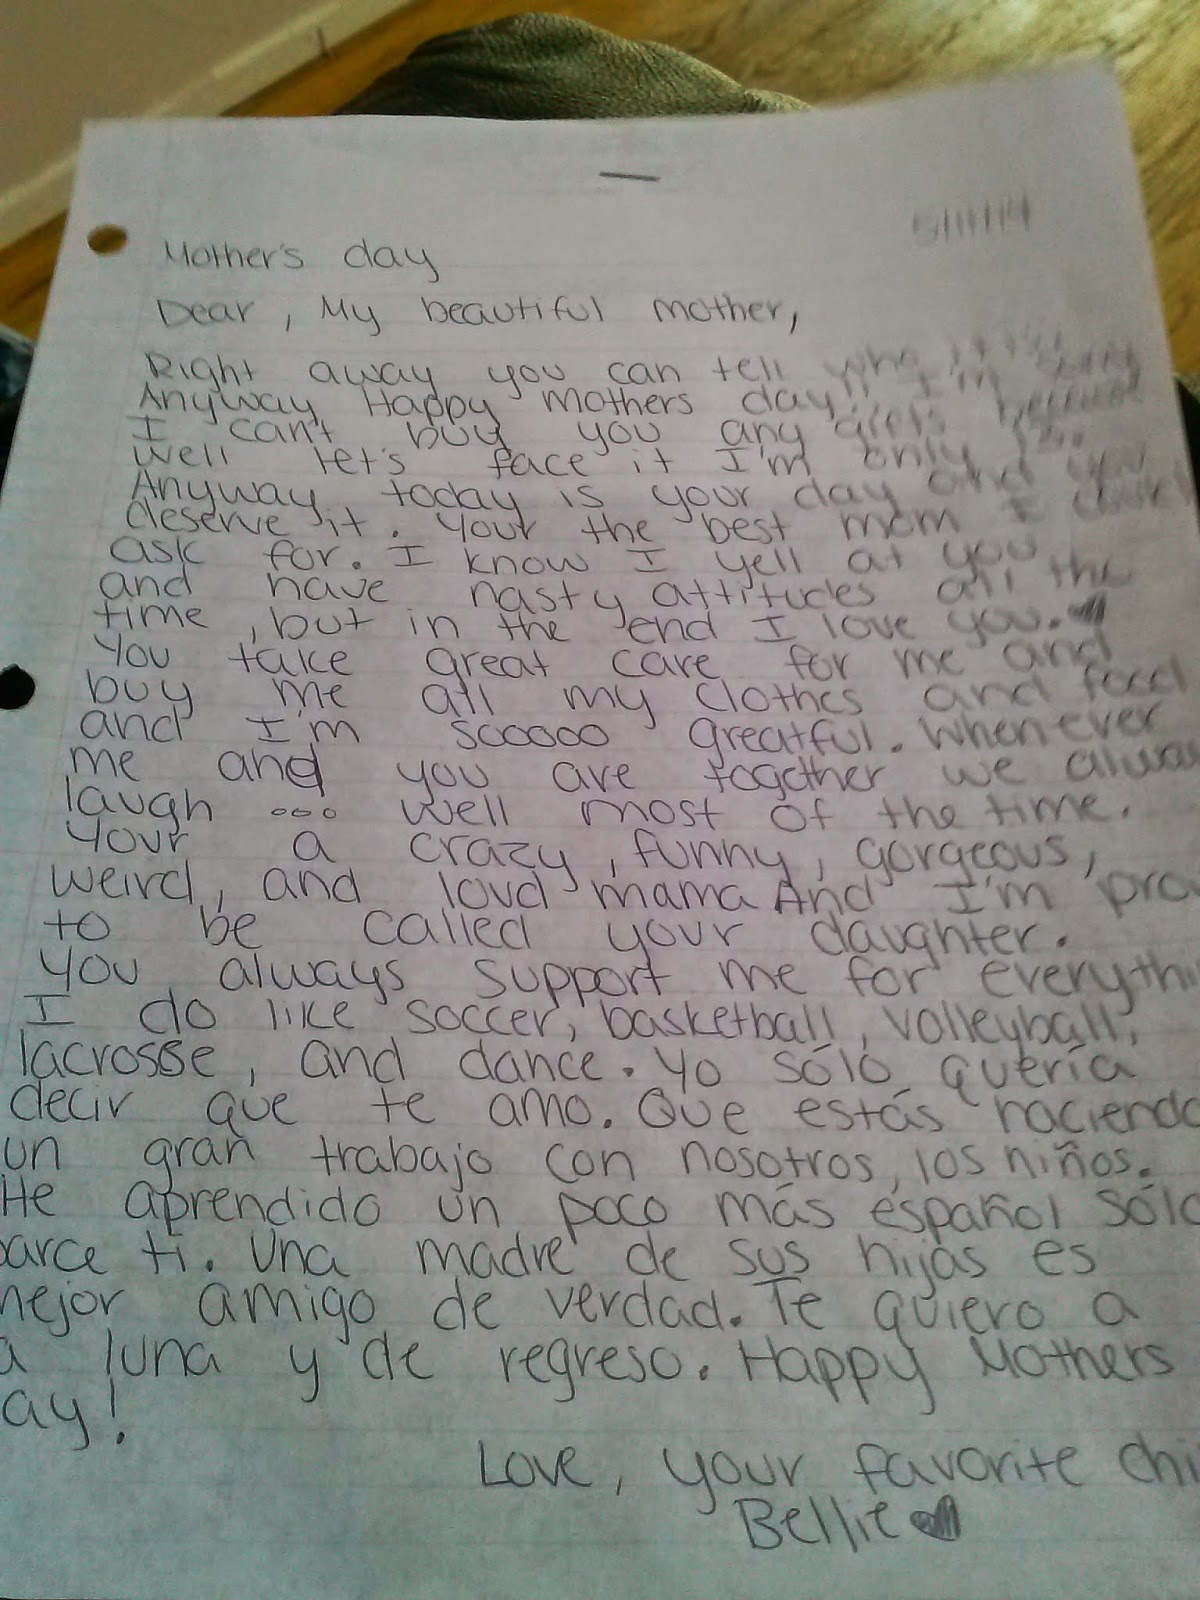 5/11/14
Mother's day
Dear, My beautiful mother,
Right away you can tell who it is
Anyway Happy Mothers day!! I'm sorry
I can't buy you any gifts because
well let's face it I'm only
Anyway today is your day and you
deserve it. Your the best mom I could
ask for. I know I yell at you
and have nasty attitudes all the
time, but in the end I love you.
You take great care for me and
buy me all my clothes and food
and I'm sooooo greatful. Whenever
me and you are together we alway
laugh ... well most of the time.
Your a crazy, funny, gorgeous,
weird, and loud mama And I'm pro
to be called your daughter.
You always support me for everythi
I do like soccer, basketball, volleyball,
lacrosse, and dance. Yo sólo quería
decir que te amo. Que estás haciendo
un gran trabajo con nosotros, los niños.
He aprendido un poco más español sólo
parce ti. Una madre de sus hijas es
mejor amigo de verdad. Te quiero a
a luna y de regreso. Happy Mothers
ay!
Love, your favorite chi
Bellie